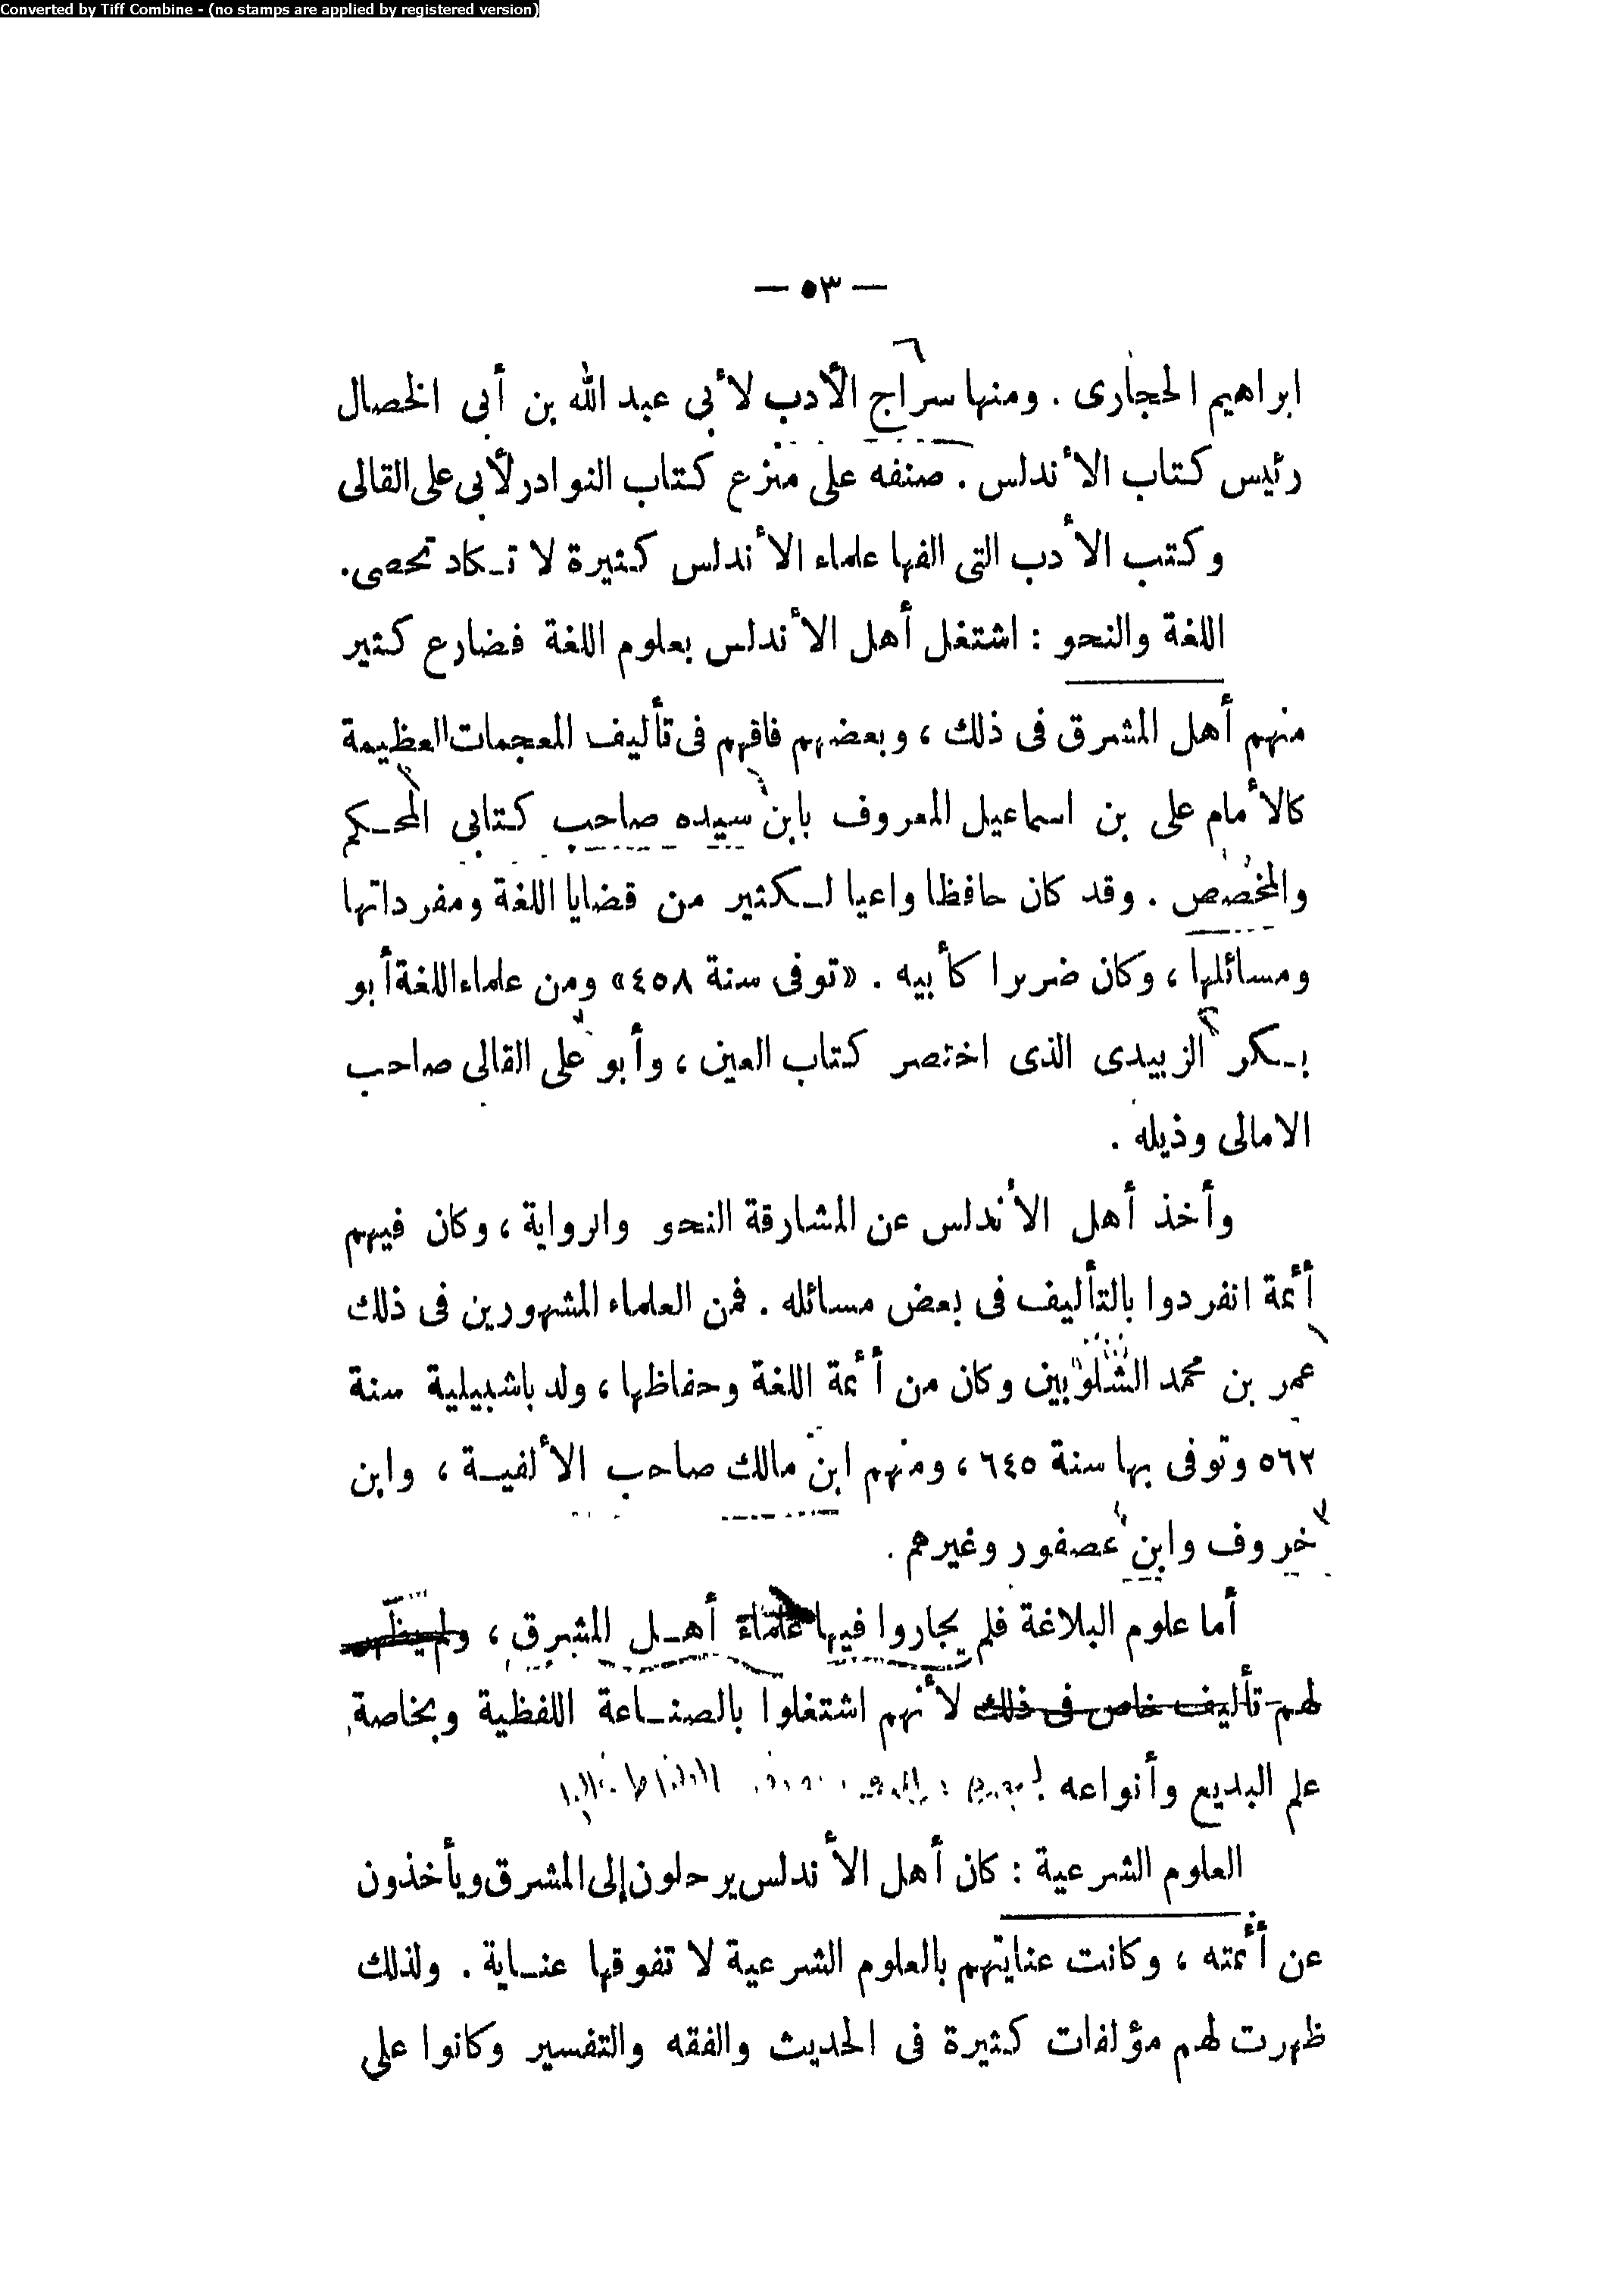 Converted by Tiff Combine - (no stamps are applied by registered version)
— ٥٣ —
ابراهيم الحجارى . ومنها سراج الأدب لأبى عبد الله بن أبى الخصال
رئيس كتاب الأندلس . صنفه على منزع كتاب النوادر لأبى على القالى
وكتب الأدب التى الفها علماء الأندلس كثيرة لا تكاد تحصى .
اللغة والنحو : اشتغل أهل الأندلس بعلوم اللغة فضارع كثير
منهم أهل المشرق فى ذلك ، وبعضهم فاقهم فى تأليف المعجمات العظيمة
كالأمام على بن اسماعيل المعروف بابن سيده صاحب كتابى المحكم
والمخصص . وقد كان حافظا واعيا لكثير من قضايا اللغة ومفرداتها
ومسائلها ، وكان ضريرا كأبيه . «توفى سنة ٤٥٨» ومن علماء اللغة أبو
بكر الزبيدى الذى اختصر كتاب العين ، وأبو على القالى صاحب
الامالى وذيله .
وأخذ أهل الأندلس عن المشارقة النحو والرواية ، وكان فيهم
أئمة انفردوا بالتأليف فى بعض مسائله . فمن العلماء المشهورين فى ذلك
عمر بن محمد الشلوبين وكان من أئمة اللغة وحفاظها ، ولد باشبيلية سنة
٥٦٢ وتوفى بها سنة ٦٤٥ ، ومنهم ابن مالك صاحب الألفية ، وابن
خروف وابن عصفور وغيرهم .
أما علوم البلاغة فلم يجاروا فيها علماء أهل المشرق ، ولم يظهر
لهم تأليف خاص فى ذلك لأنهم اشتغلوا بالصناعة اللفظية وبخاصة
علم البديع وأنواعه
العلوم الشرعية : كان أهل الأندلس يرحلون إلى المشرق ويأخذون
عن أئمته ، وكانت عنايتهم بالعلوم الشرعية لا تفوقها عناية . ولذلك
ظهرت لهم مؤلفات كثيرة فى الحديث والفقه والتفسير وكانوا على